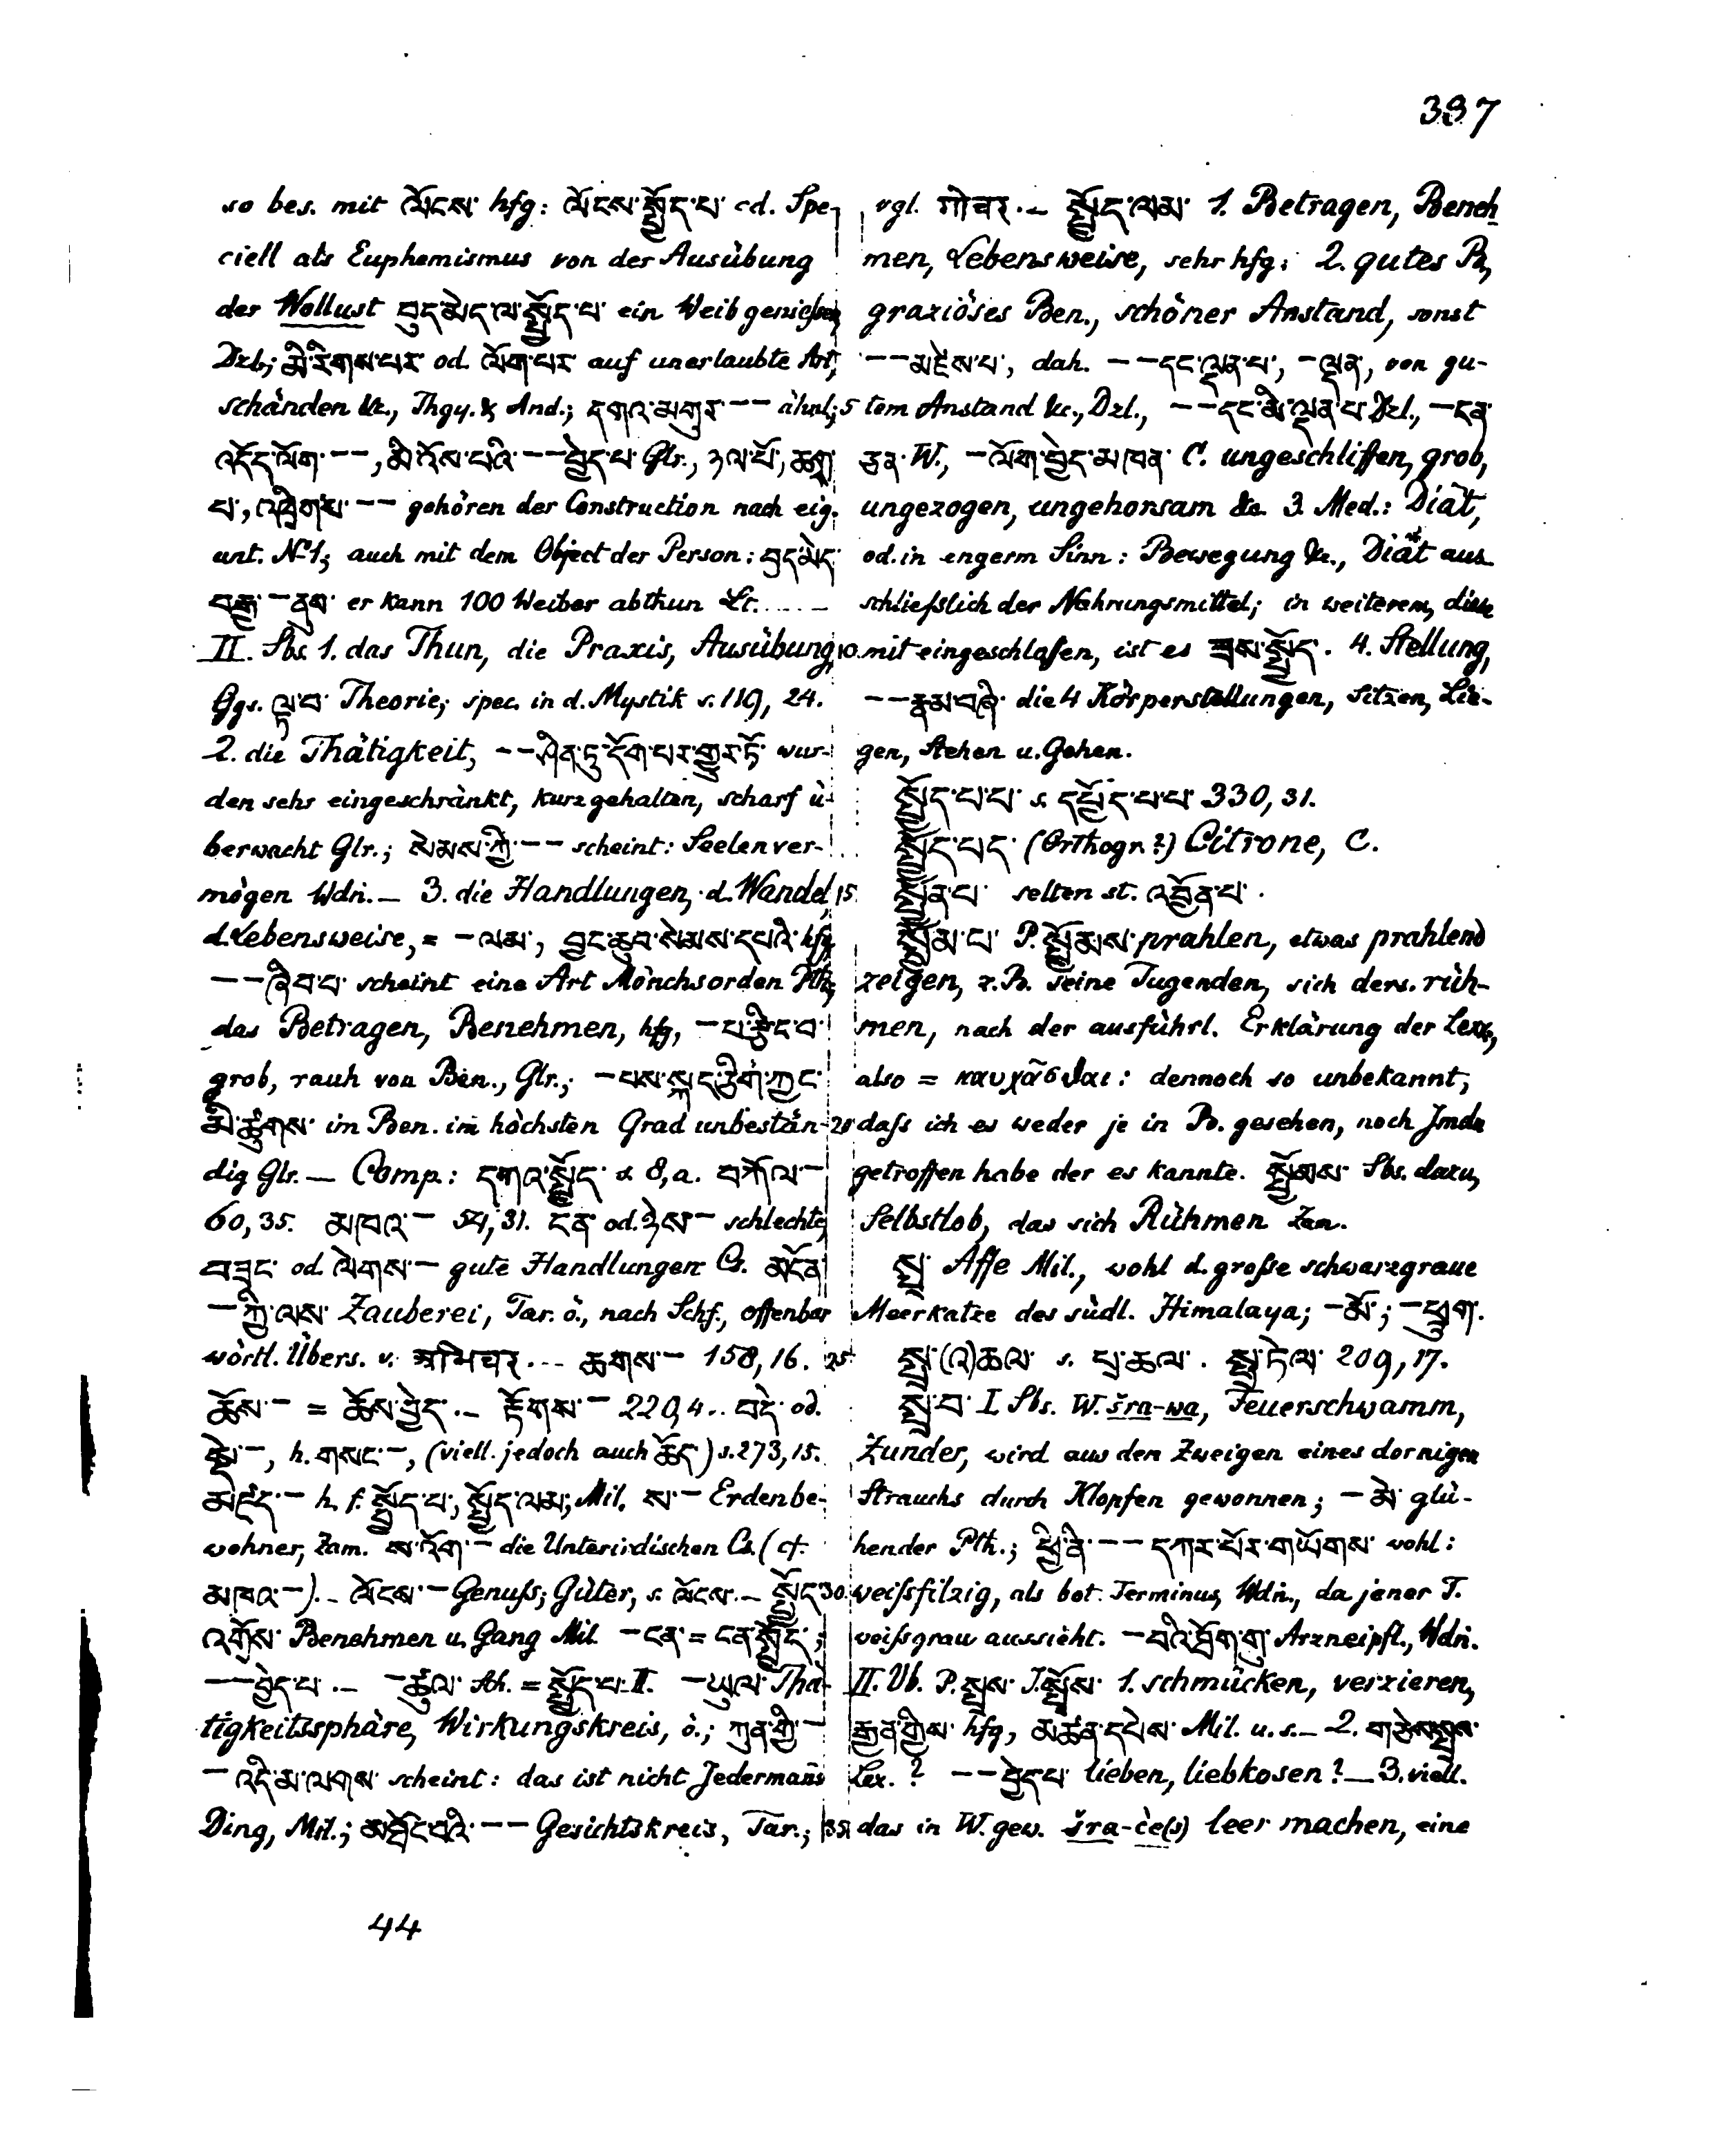 337
so bes. mit ལོངས་ hfg: ལོངས་སྤྱོད་པ་ cd. Spe-
ciell als Euphemismus von der Ausübung
der Wollust བུད་མེད་ལ་སྤྱོད་པ་ ein Weib genießen
Dzl.; མི་རིགས་པར་ od. ལོག་པར་ auf unerlaubte Art,
schänden &c., Thgy. & And.; དགའ་མགུར་ -- ähnl.;
འདོད་ལོག་ --, མི་འོས་པའི་ -- བྱེད་པ་ Glr.,
པ་, འཁྲིག་པ་ -- gehören der Construction nach eig.
unt. No 1; auch mit dem Object der Person: བུད་མེད་
བརྒྱ་ - ནུས་ er kann 100 Weiber abthun Lt.
II. Sbs. 1. das Thun, die Praxis, Ausübung,
Ggs. ལྟ་བ་ Theorie; spec. in d. Mystik s. 119, 24.
2. die Thätigkeit, -- ཤིན་ཏུ་དོག་པར་གྱུར་ཏོ་ wur-
den sehr eingeschränkt, kurz gehalten, scharf ü-
berwacht Glr.; སེམས་ཀྱི་ -- scheint: Seelenver-
mögen Wdṅ. — 3. die Handlungen, d. Wandel,
d. Lebensweise, = - ལམ་, བྱང་ཆུབ་སེམས་དཔའི་ hfg.
-- ཞིབ་པ་ scheint eine Art Mönchsorden Pth.;
das Betragen, Benehmen, hfg, - པ་རྩིང་བ་
grob, rauh von Ben., Glr.; - པས་སྐད་ཅིག་ཀྱང་
མི་ཚུགས་ im Ben. im höchsten Grad unbestän-
dig Glr. — Comp.: དཀའ་སྤྱོད་ s. 8, a. བཀོལ་ -
60, 35. མཁའ་ - 54, 31. ངན་ od. ཉེས་ - schlechte,
བཟང་ od. ལེགས་ - gute Handlungen Cs. མངོན་
- ཀྱི་ལས་ Zauberei, Tar. ö., nach Schf., offenbar
wörtl. Übers. v. अभिचार. — ཆགས་ - 158, 16.
ཆོས་ - = ཆོས་བྱེད་. — རྟོགས་ - 220, 4.. བདེ་ od.
སྡེ་ -, h. གསང་ -, (viell. jedoch auch ཆོད་) s. 273, 15.
མཛད་ - h. f. སྤྱོད་པ་, སྤྱོད་ལམ་; Mil. ས་ - Erdenbe-
wohner, Zam. ས་འོག་ - die Unterirdischen Cs. (cf.
མཁའ་ -). — ལོངས་ - Genuß; Güter, s. ལོངས་. — སྤྱོད་
འགྲོས་ Benehmen u. Gang Mil. - ངན་ = ངན་སྤྱོད་;
-- བྱེད་པ་. — - ཚུལ་ Sch. = སྤྱོད་པ་ II. - ཡུལ་ Thä-
tigkeitssphäre, Wirkungskreis, ö.; ཀུན་གྱི་ -
- འདི་མ་ལགས་ scheint: das ist nicht Jedermanns
Ding, Mil.; མཐོང་བའི་ -- Gesichtskreis, Tar.;
44
vgl. गोचर. — སྤྱོད་ལམ་ 1. Betragen, Beneh
men, Lebensweise, sehr hfg; 2. gutes B.,
graziöses Ben., schöner Anstand, sonst
-- མཛེས་པ་, dah. -- དང་ལྡན་པ་, - ལྡན་, von gu-
5 tem Anstand &c., Dzl., -- དང་མི་ལྡན་པ་ Dzl., - ངན་
ཅན་ W., - ལོག་བྱེད་མཁན་ C. ungeschliffen, grob,
ungezogen, ungehorsam &c. 3. Med.: Diät,
od. in engerm Sinn: Bewegung &c., Diät aus
schließlich der Nahrungsmittel; in weiterem, diese
10. mit eingeschlossen, ist es ཟས་སྤྱོད་. 4. Stellung,
-- རྣམ་བཞི་ die 4 Körperstellungen, Sitzen, Lie-
gen, Stehen u. Gehen.
སྤྱོད་པ་པ་ s. དཔྱོད་པ་པ་ 330, 31.
སྤྱོད་པད་ (Orthogr.?) Citrone, C.
15. སྤྱོན་པ་ selten st. འབྱོན་པ་.
སྤྱོམ་པ་ P. སྤྱོམས་ prahlen, etwas prahlend
zeigen, z. B. seine Tugenden, sich ders. rüh-
men, nach der ausführl. Erklärung der Lexx.,
also = καυχᾶσθαι: dennoch so unbekannt,
20 daß ich es weder je in B. gesehen, noch Jmdn
getroffen habe der es kannte. སྤྱོམས་ Sbs. dazu,
Selbstlob, das sich Rühmen Zam.
སྤྲ་ Affe Mil., wohl d. große schwarzgraue
Meerkatze des südl. Himalaya; - མོ་; - ཕྲུག་.
25. སྤྲ་(འ)ཆལ་ s. པྲ་ཆལ་. སྤྲ་ཏེལ་ 209, 17.
སྤྲ་བ་ I. Sbs. W. šra-wa, Feuerschwamm,
Zunder, wird aus den Zweigen eines dornigen
Strauchs durch Klopfen gewonnen; - མེ་ glü-
hender Pth.; ཕྱི་ནི་ -- དཀར་པོར་གཡོགས་ wohl:
30. weißfilzig, als bot. Terminus, Wdṅ., da jener T.
weißgrau aussieht. - བའི་ཐོག་གུ་ Arzneipfl., Wdṅ.
II. Vb. P. སྤྲས་ J. སྤྲོས་ 1. schmücken, verzieren,
རྒྱན་གྱིས་ hfg, མཚན་དཔེས་ Mil. u. s. — 2. གཅེས་སྤྲས་
Lex.? -- བྱེད་པ་ lieben, liebkosen? — 3. viell.
35. das in W. gew. šra-c̀e(s) leer machen, eine